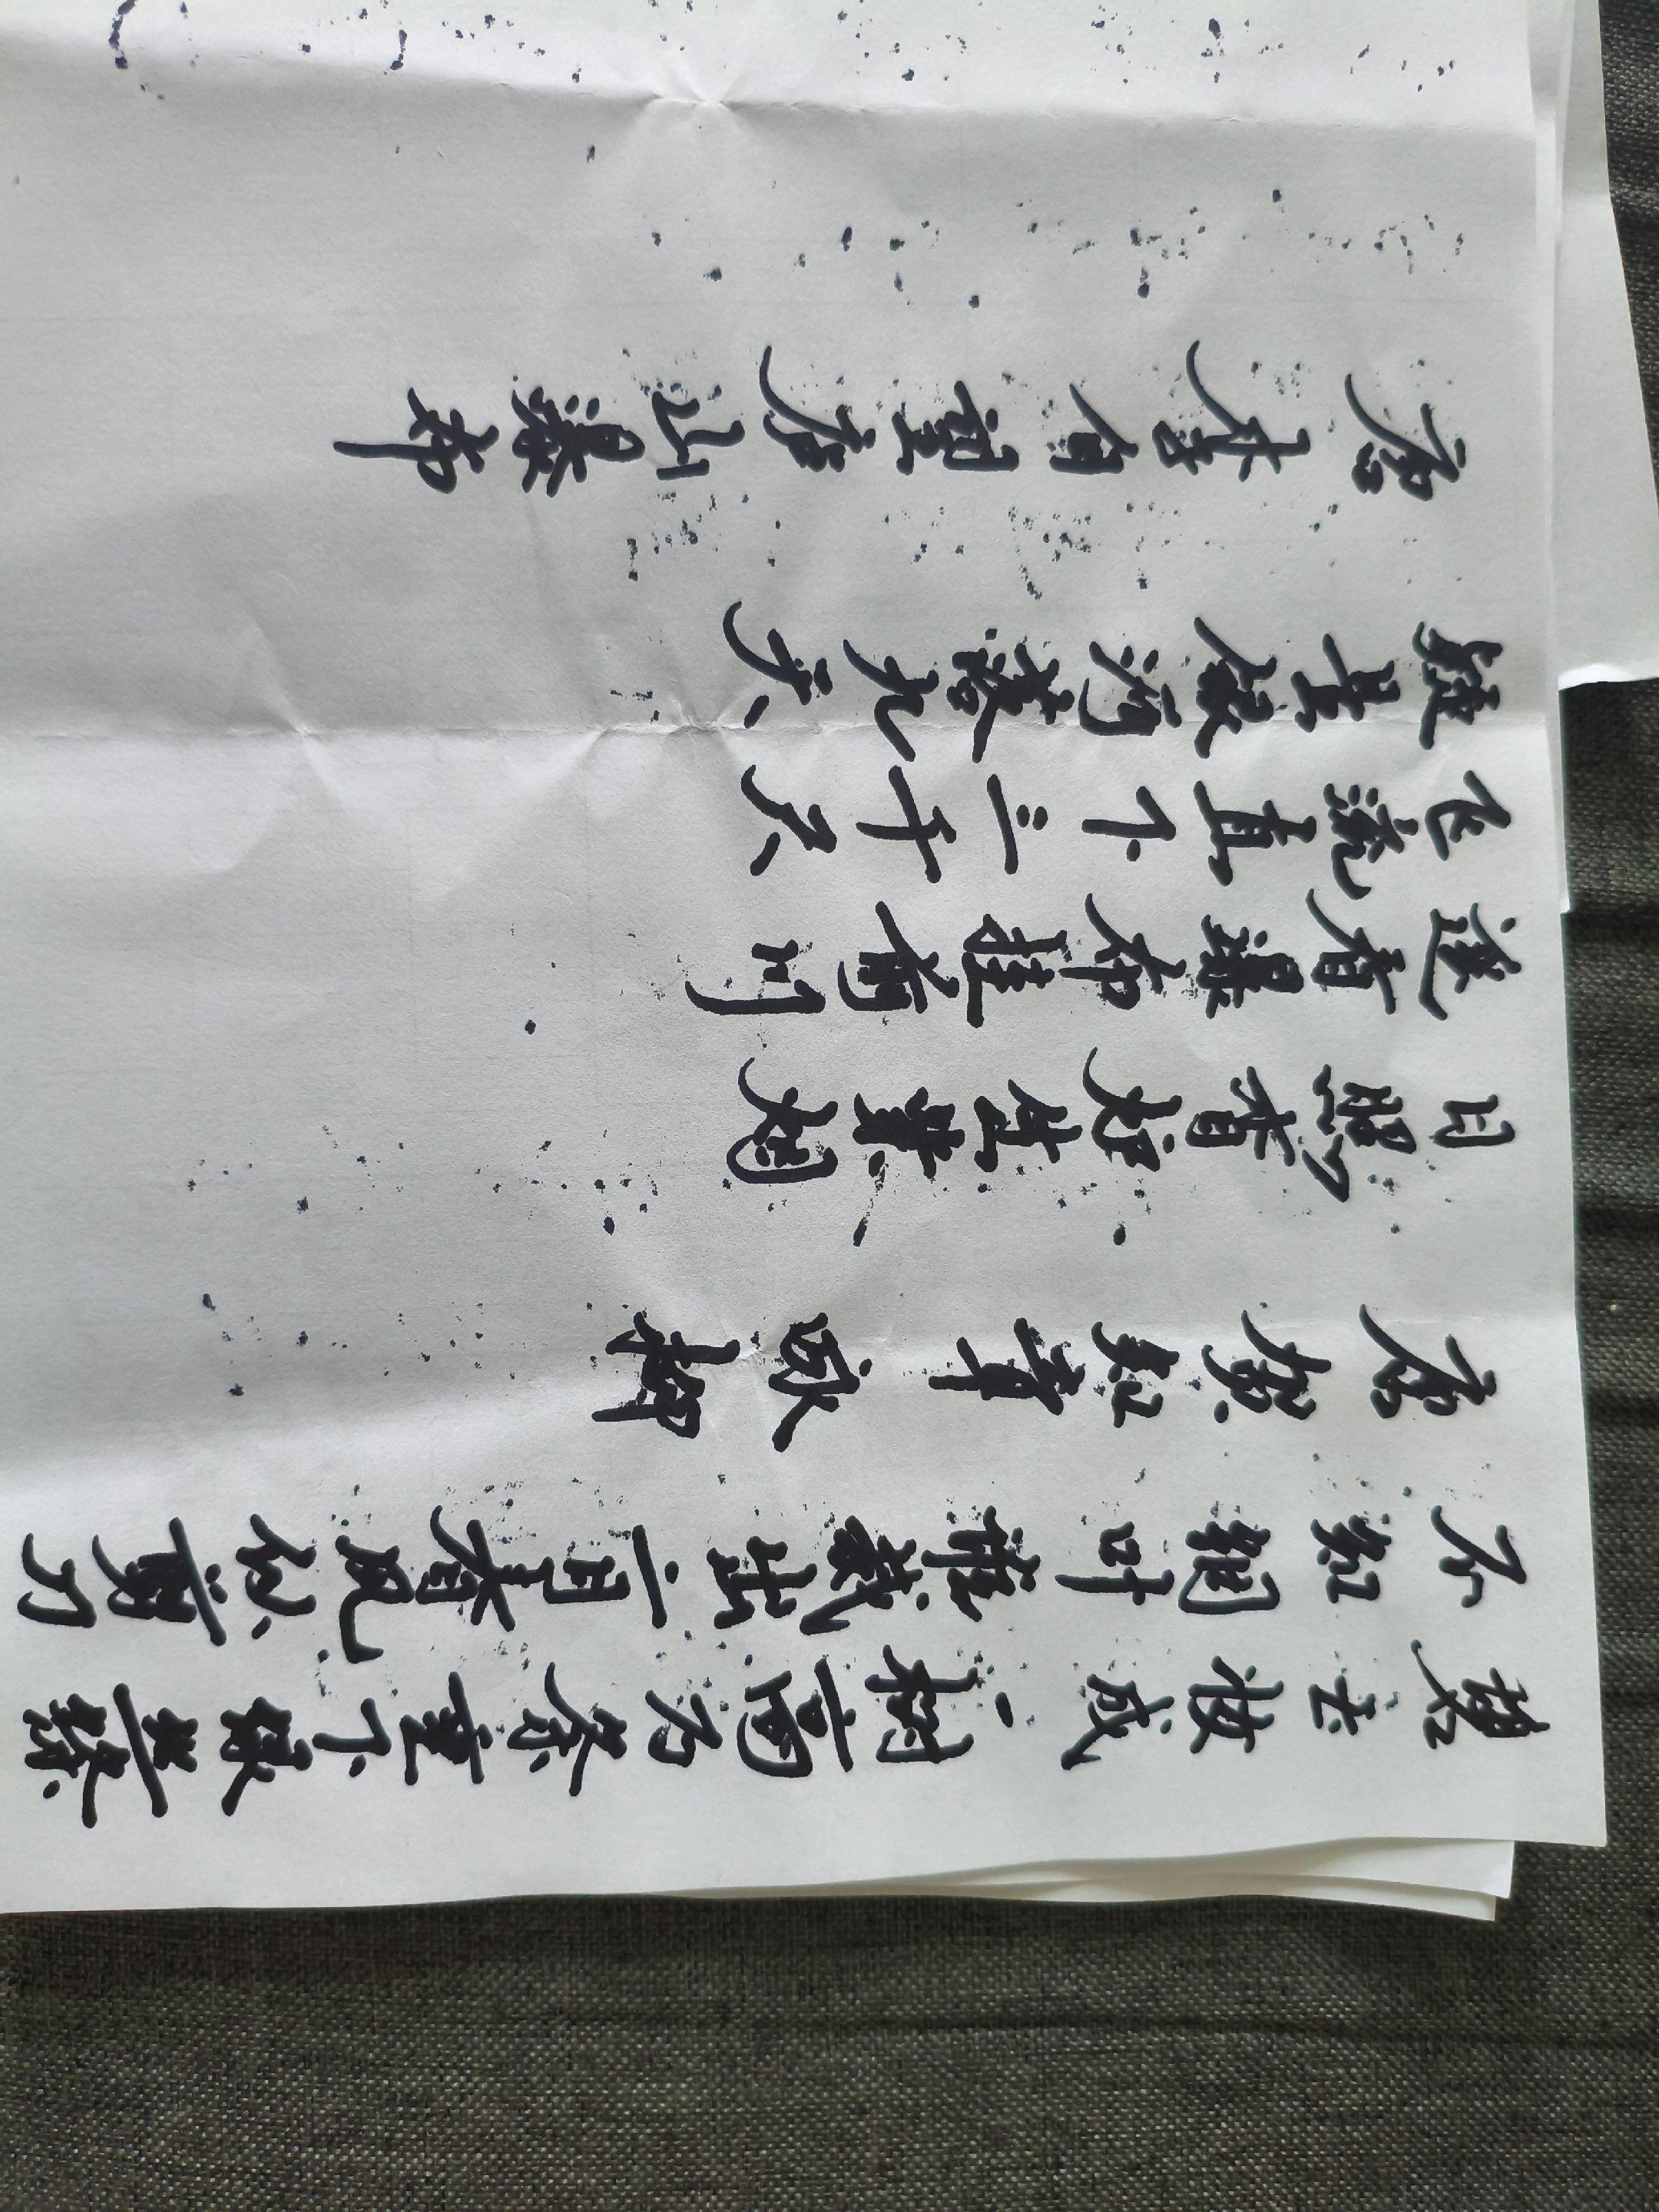 碧玉妆成一树高万条垂下绿丝绦
不知細叶誰裁出二月春风似剪刀
唐贺知章咏柳
日照香炉生紫烟
遥看瀑布挂前川
飞流直下三千尺
疑是银河落九天
唐李白望庐山瀑布